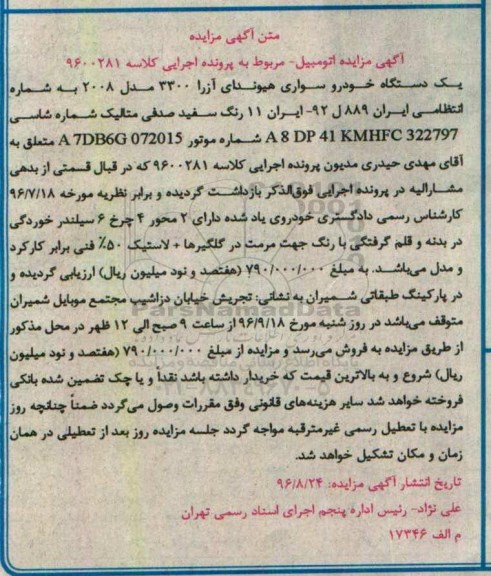 متن آگهی مزایده
آگهی مزایده اتومبیل- مربوط به پرونده اجرایی کلاسه ۹۶۰۰۲۸۱
یک دستگاه خودرو سواری هیوندای آزرا ۳۳۰۰ مدل ۲۰۰۸ به شماره
انتظامی ایران ۸۸۹ ل ۹۲- ایران ۱۱ رنگ سفید صدفی متالیک شماره شاسی
A 8 DP 41 KMHFC 322797 شماره موتور A 7DB6G 072015 متعلق به
آقای مهدی حیدری مدیون پرونده اجرایی کلاسه ۹۶۰۰۲۸۱ که در قبال قسمتی از بدهی
مشارالیه در پرونده اجرایی فوق‌الذکر بازداشت گردیده و برابر نظریه مورخه ۹۶/۷/۱۸
کارشناس رسمی دادگستری خودروی یاد شده دارای ۲ محور ۴ چرخ ۶ سیلندر خوردگی
در بدنه و قلم گرفتگی با رنگ جهت مرمت در گلگیرها + لاستیک ۵۰٪ فنی برابر کارکرد
و مدل می‌باشد. به مبلغ ۷۹۰/۰۰۰/۰۰۰ (هفتصد و نود میلیون ریال) ارزیابی گردیده و
در پارکینگ طبقاتی شمیران به نشانی: تجریش خیابان دزاشیب مجتمع موبایل شمیران
متوقف می‌باشد در روز شنبه مورخ ۹۶/۹/۱۸ از ساعت ۹ صبح الی ۱۲ ظهر در محل مذکور
از طریق مزایده به فروش می‌رسد و مزایده از مبلغ ۷۹۰/۰۰۰/۰۰۰ (هفتصد و نود میلیون
ریال) شروع و به بالاترین قیمت که خریدار داشته باشد نقداً و یا چک تضمین شده بانکی
فروخته خواهد شد سایر هزینه‌های قانونی وفق مقررات وصول می‌گردد ضمناً چنانچه روز
مزایده با تعطیل رسمی غیرمترقبه مواجه گردد جلسه مزایده روز بعد از تعطیلی در همان
زمان و مکان تشکیل خواهد شد.
تاریخ انتشار آگهی مزایده: ۹۶/۸/۲۴
علی نژاد- رئیس اداره پنجم اجرای اسناد رسمی تهران
م الف ۱۷۳۴۶
ParsNamadData